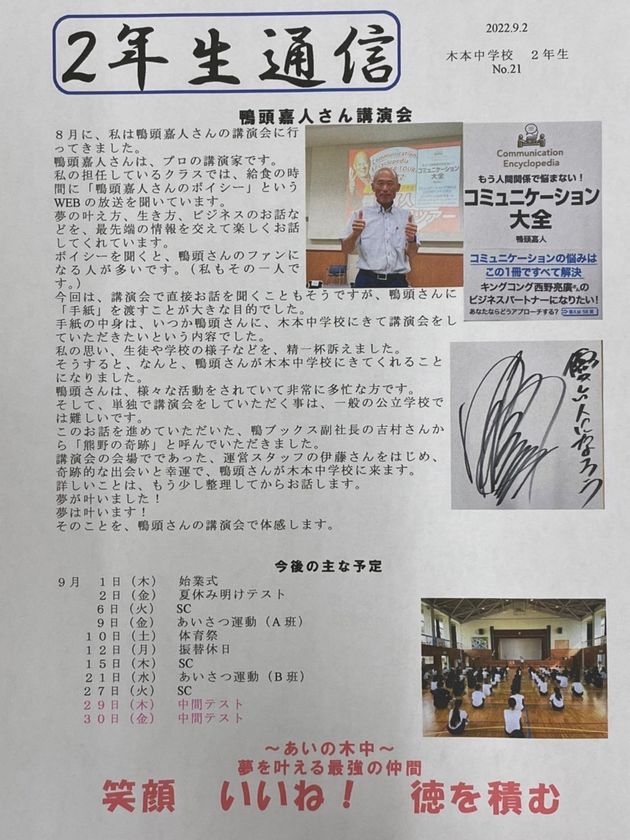 2年生通信
2022.9.2
木本中学校 2年生
No.21
鴨頭嘉人さん講演会
8月に、私は鴨頭嘉人さんの講演会に行
ってきました。
鴨頭嘉人さんは、プロの講演家です。
私の担任しているクラスでは、給食の時
間に「鴨頭嘉人さんのボイシー」という
WEBの放送を聞いています。
夢の叶え方、生き方、ビジネスのお話な
どを、最先端の情報を交えて楽しくお話
してくれています。
ボイシーを聞くと、鴨頭さんのファンに
なる人が多いです。(私もその一人で
す。)
今回は、講演会で直接お話を聞くこともそうですが、鴨頭さんに
「手紙」を渡すことが大きな目的でした。
手紙の中身は、いつか鴨頭さんに、木本中学校にきて講演会をし
ていただきたいという内容でした。
私の思い、生徒や学校の様子などを、精一杯訴えました。
そうすると、なんと、鴨頭さんが木本中学校にきてくれること
になりました。
鴨頭さんは、様々な活動をされていて非常に多忙な方です。
そして、単独で講演会をしていただく事は、一般の公立学校で
は難しいです。
このお話を進めていただいた、鴨ブックス副社長の吉村さんか
ら「熊野の奇跡」と呼んでいただきました。
講演会の会場でであった、運営スタッフの伊藤さんをはじめ、
奇跡的な出会いと幸運で、鴨頭さんが木本中学校に来ます。
詳しいことは、もう少し整理してからお話します。
夢が叶いました!
夢は叶います!
そのことを、鴨頭さんの講演会で体感します。
Communication
Encyclopedia
コミュニケーション
大全
Communication
Encyclopedia
もう人間関係で悩まない!
コミュニケーション
大全
鴨頭嘉人
コミュニケーションの悩みは
この1冊ですべて解決
キングコング西野亮廣さんの
ビジネスパートナーになりたい!
あなたならどうアプローチする?
愛しい人になろう
今後の主な予定
9月 1日(木) 始業式
2日(金) 夏休み明けテスト
6日(火) SC
9日(金) あいさつ運動(A班)
10日(土) 体育祭
12日(月) 振替休日
15日(木) SC
21日(水) あいさつ運動(B班)
27日(火) SC
29日(木) 中間テスト
30日(金) 中間テスト
~あいの木中~
夢を叶える最強の仲間
笑顔 いいね! 徳を積む